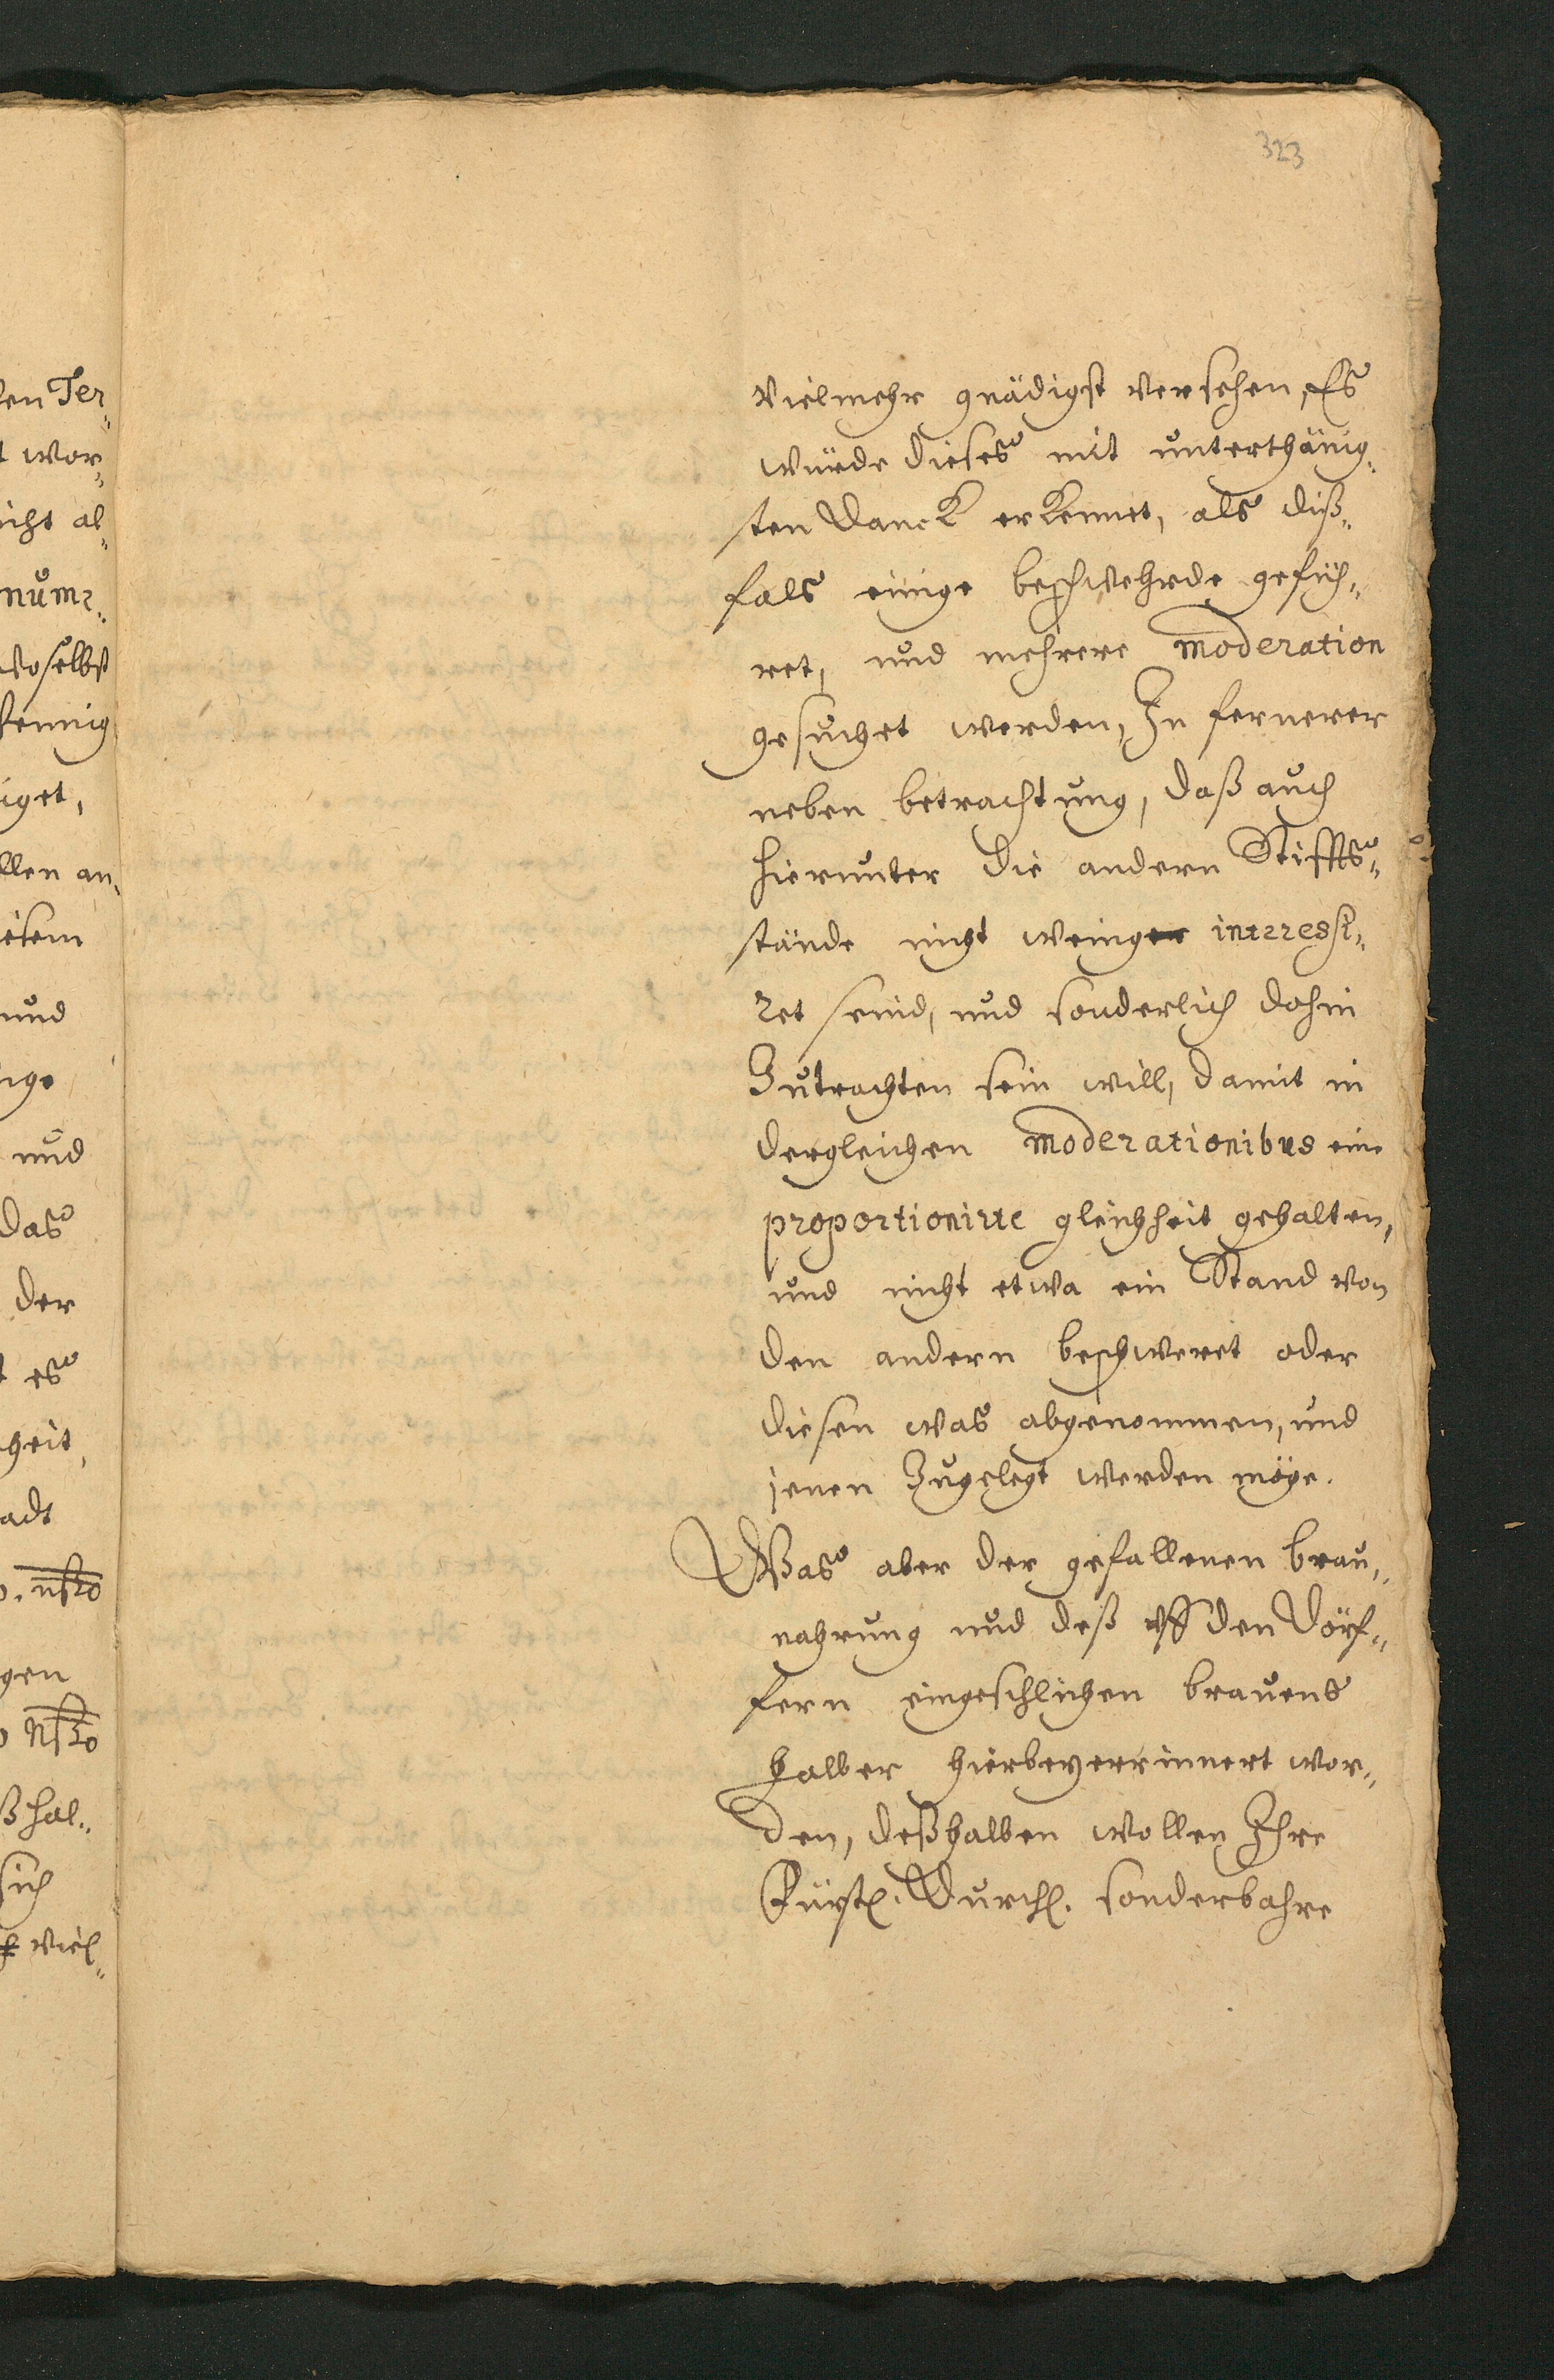 323
vielmehr gnädigst versehen, Es
würde dieses mit unterthänig„
sten Danck erkennet, als diß„
fals einige beschwehrde gefüh„
ret, und mehrere moderation
gesuchet werden, In fernerer
neben betrachtung, daß auch
hierunter die andern Stiffts„
stände nicht weinger interessi„
ret seind, und sonderlich dahin
Zutrachten sein will, damit in
dergleichen moderationibus eine
proportionirte gleichheit gehalten,
und nicht etwa ein Stand von
den andern beschweret oder
diesen was abgenommen, und
jenen Zugelegt werden möge.
Was aber der gefallenen brau„
nahrung und deß uff den Dörf„
fern eingeschlichen brauens
halber hierbey errinnert wor„
den, deßhalben wollen Ihre
Fürstl. Durchl. sonderbahre
den Ter„
wor„
icht al„
num„
woselbst
fennig
iget,
llen an„
iesem
und
nge
und
das
der
es
heit,
adt
gen
ß hal„
sich
viel„